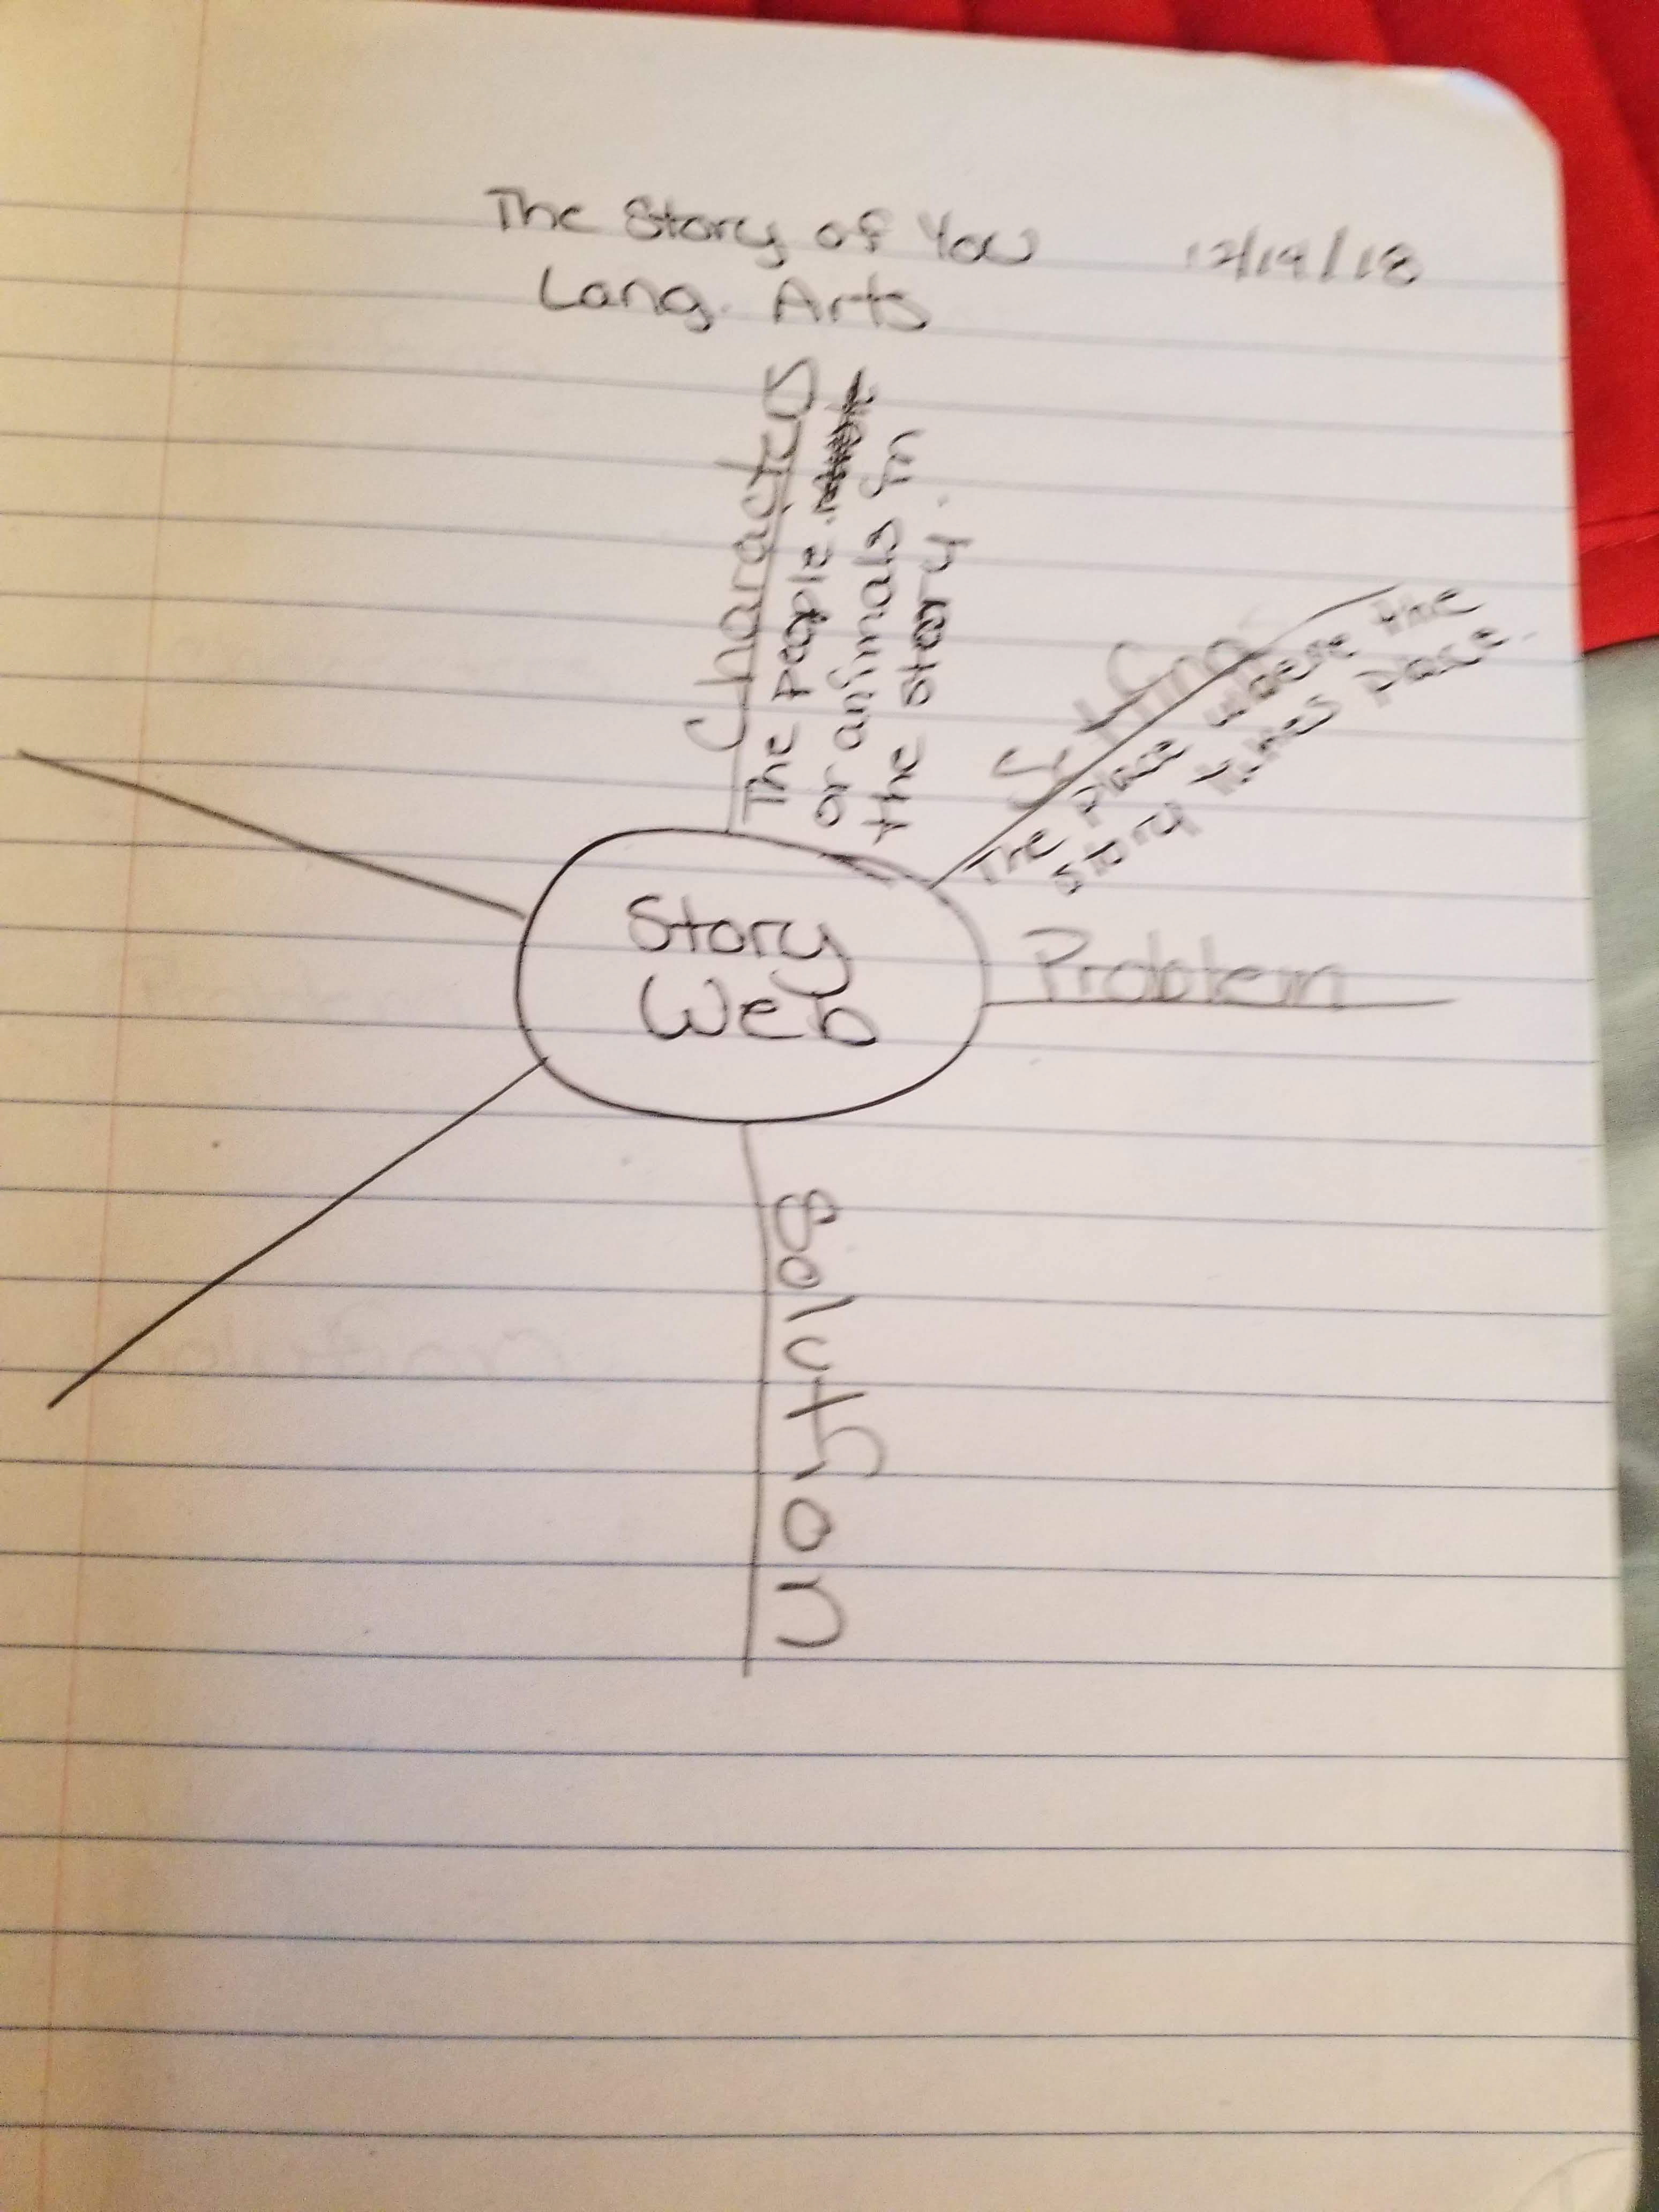 The Story of You 12/19/18
Lang. Arts
Characters
The people
or animals in
the story.
Setting
The place where the
story takes place.
Story
Web
Problem
Solution